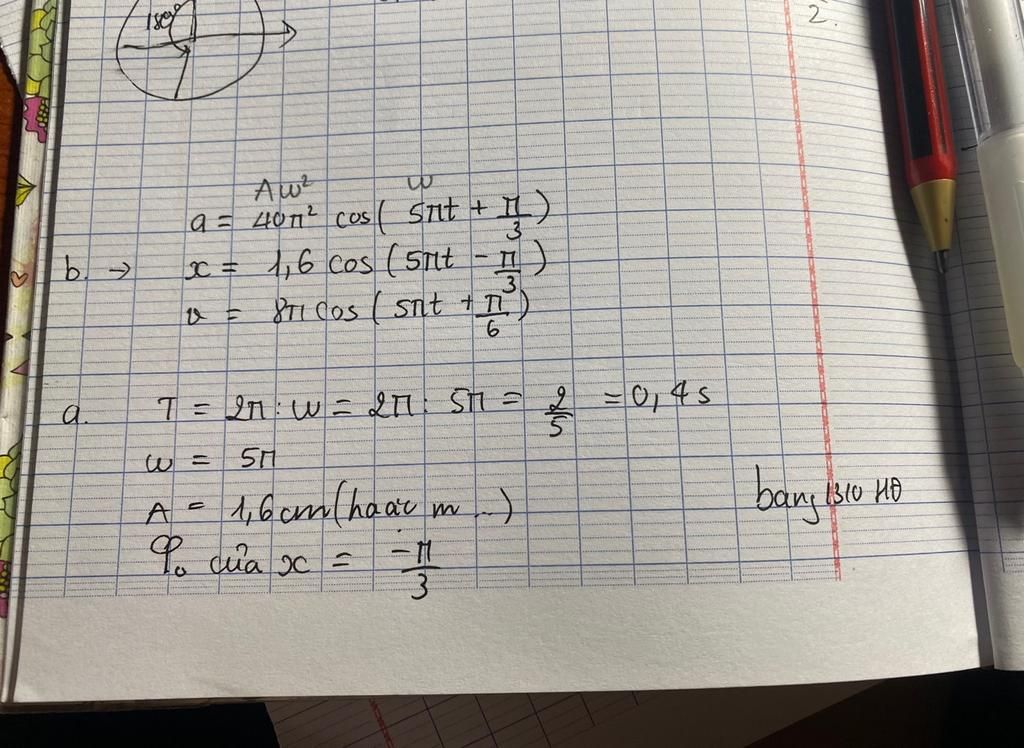 180°
2.
Aω² ω
a = 40π² cos( 5πt + π/3 )
b. → x = 1,6 cos (5πt - π/3 )
v = 8π cos ( 5πt + π/6 )
a. T = 2π : ω = 2π : 5π = 2/5 = 0,4s
ω = 5π
A = 1,6 cm (hoặc m ...)
φ₀ của x = -π/3